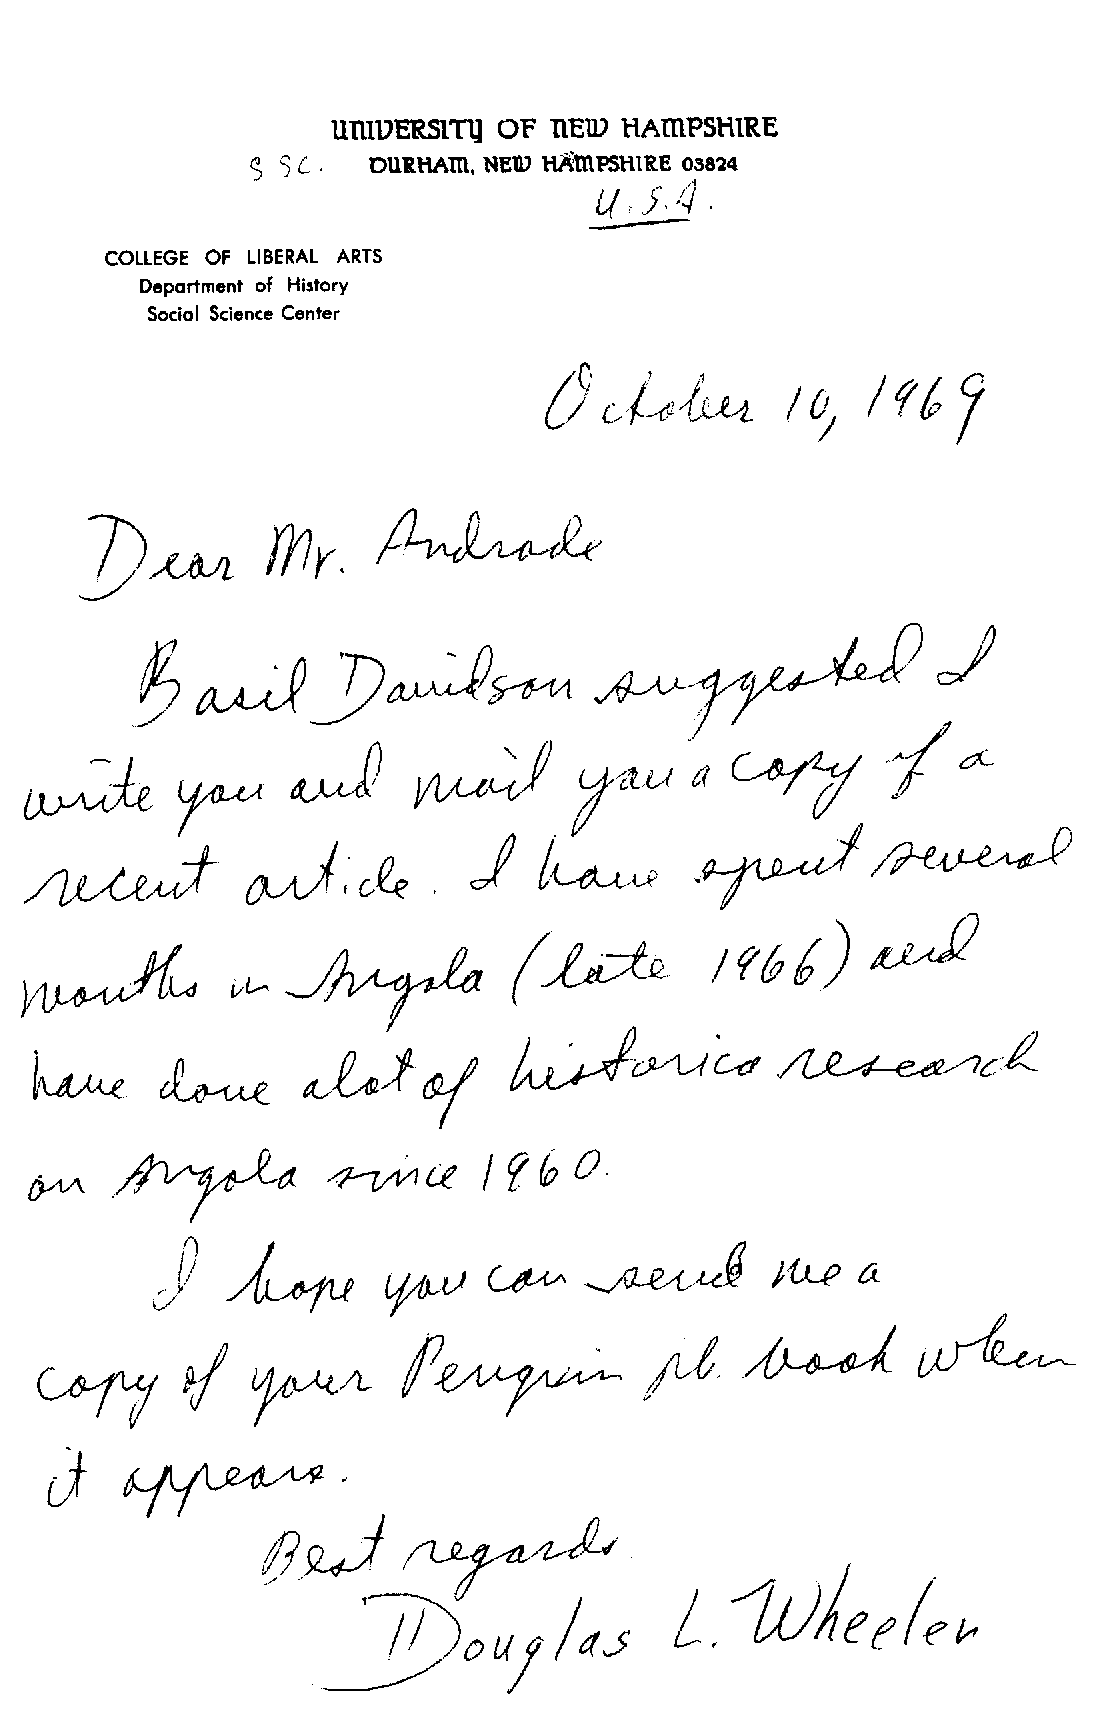 UNIVERSITY OF NEW HAMPSHIRE
SSC. DURHAM, NEW HAMPSHIRE 03824
U.S.A.
COLLEGE OF LIBERAL ARTS
Department of History
Social Science Center
October 10, 1969
Dear Mr. Andrade
Basil Davidson suggested I
write you and mail you a copy of a
recent article. I have spent several
months in Angola (late 1966) and
have done alot of historica research
on Angola since 1960.
I hope you can send me a
copy of your Penguin pb. book when
it appears.
Best regards
Douglas L. Wheeler